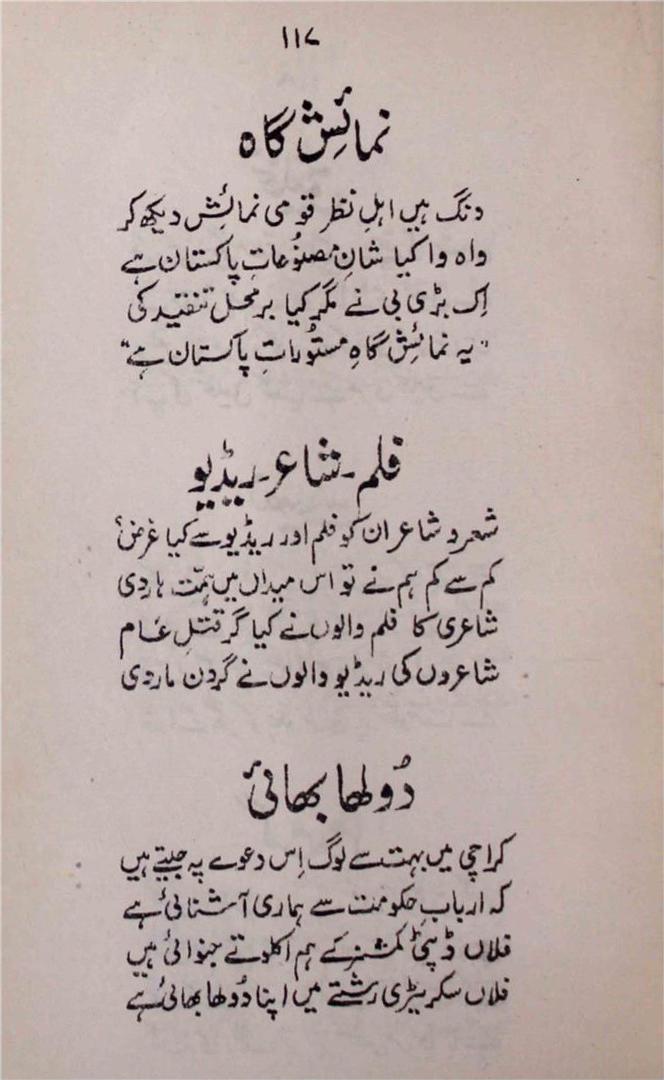 ۱۱۷
نمائشِ گاہ
دنگ ہیں اہلِ نظر قومی نمائش دیکھ کر
واہ وا کیا شانِ مصنُوعاتِ پاکستان ہے
اِک بڑی بی نے مگر کیا برمحل تنقید کی
"یہ نمائش گاہِ مستُوراتِ پاکستان ہے"
فلم۔ شاعر۔ ریڈیو
شعر و شاعران کو فلم اور ریڈیو سے کیا غرض؟
کم سے کم ہم نے تو اس میداں میں ہمّت ہار دی
شاعری کا فلم والوں نے کیا گر قتلِ عَام
شاعروں کی ریڈیو والوں نے گردن مار دی
دُولھا بھائی
کراچی میں بہت سے لوگ اِس دعوے پہ جیتے ہیں
کہ اربابِ حکومت سے ہماری آشنائی ہے
فلاں ڈپٹی کمشنر کے ہم اکلوتے جنوائی ہیں
فلاں سکریٹری رشتے میں اپنا دُولھا بھائی ہے